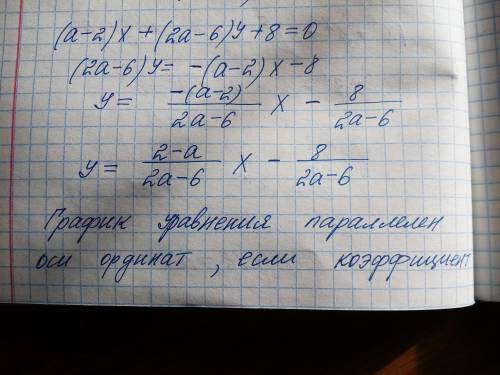 (a-2)x+(2a-6)y+8=0
(2a-6)y= -(a-2)x-8
y= -(a-2)/2a-6 x - 8/2a-6
y= 2-a/2a-6 x - 8/2a-6
График уравнения параллелен
оси ординат, если коэффициент